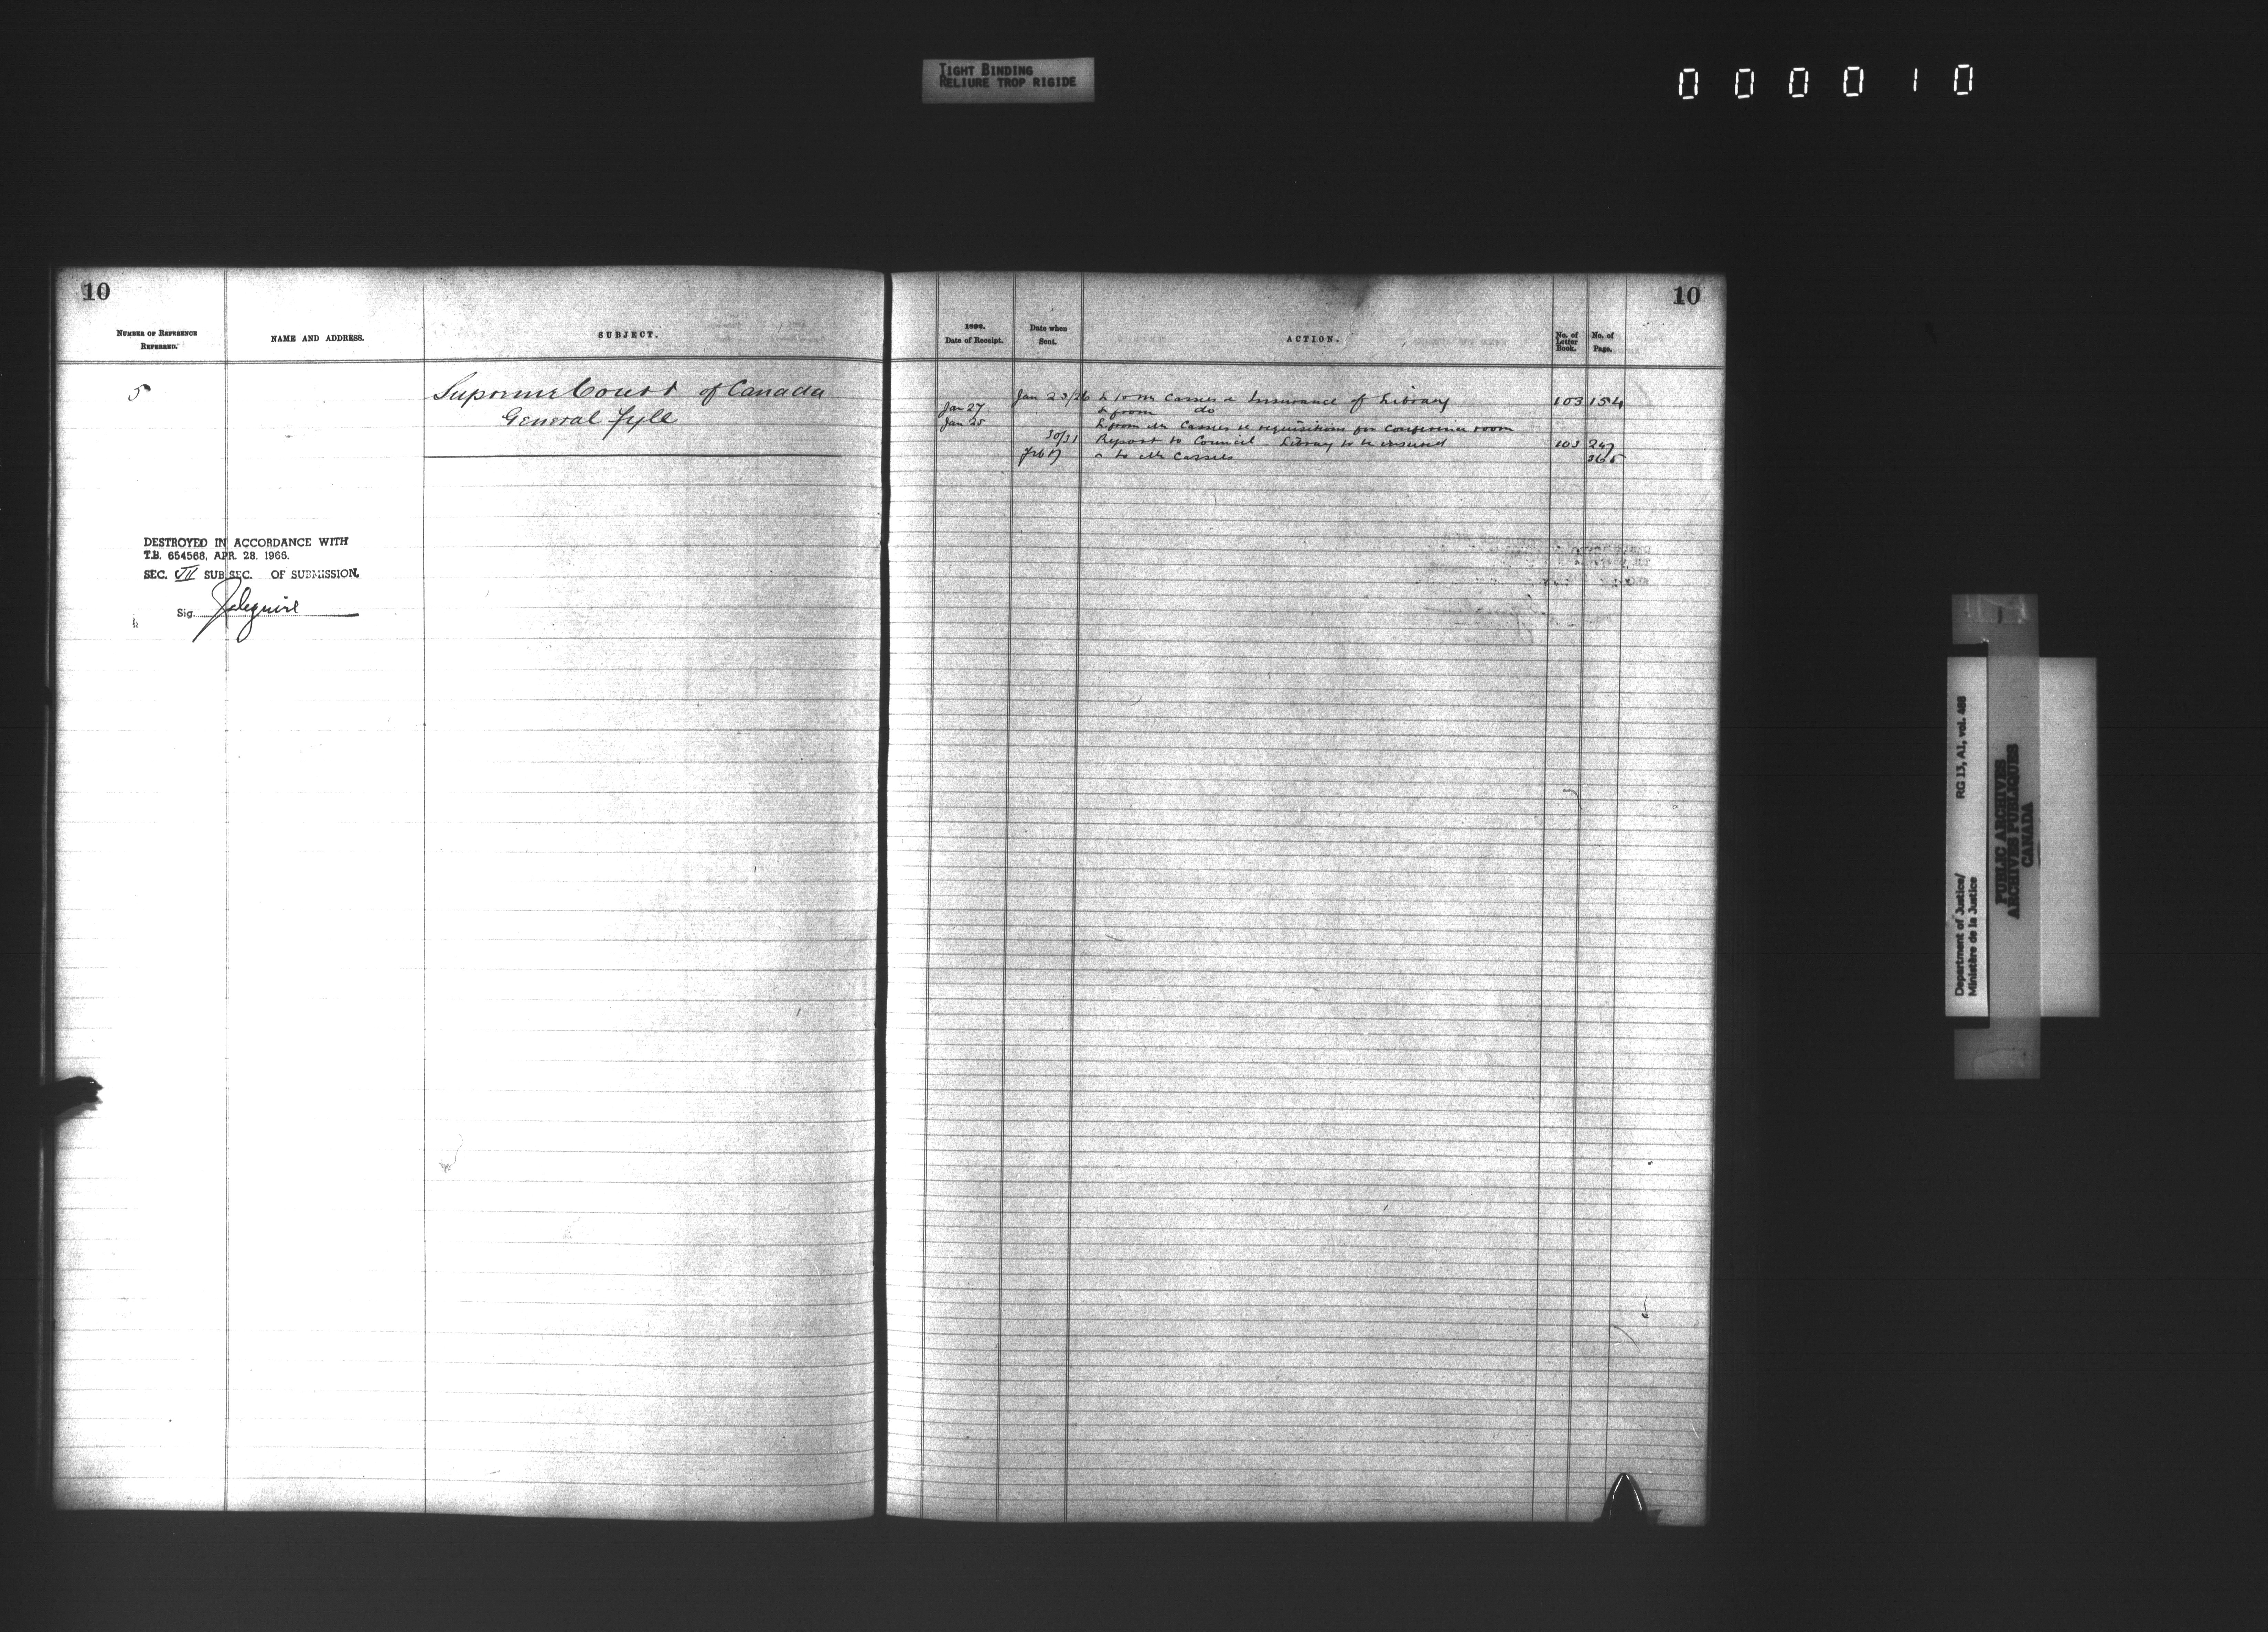 TIGHT BINDING
RELIURE TROP RIGIDE
000010
10
NUMBER OF REFERENCE
REFERRED.
NAME AND ADDRESS.
SUBJECT.
5
Supreme Court of Canada
General Fyle
DESTROYED IN ACCORDANCE WITH
T.B. 654568, APR. 28. 1966.
SEC. VII SUB SEC. OF SUBMISSION.
Sig.
10
Date of Receipt.
Date when
Sent.
ACTION.
No. of
Letter
Book.
No. of
Page.
Jan 25/26 L to Mr Cassels re Insurance of Library 103 154
Jan 27 L from do
Jan 25 L from Mr Cassels re requisitions for Conference room
30/31 Report to Council Library to be insured 103 247
Feb to Mr Cassels 365
Department of Justice/ RG 13, A1, vol. 488
Ministère de la Justice
PUBLIC ARCHIVES
ARCHIVES PUBLIQUES
CANADA